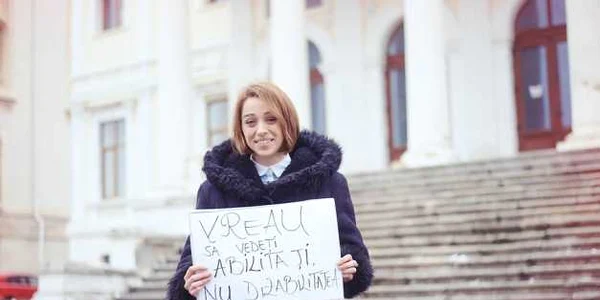 VREAU
SĂ VEDEȚI
ABILITAȚI,
NU DIZABILITATEA